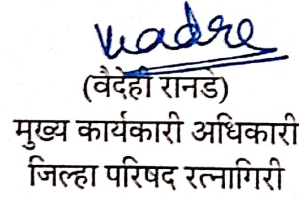 (वैदेही रानडे)
मुख्य कार्यकारी अधिकारी
जिल्हा परिषद रत्नागिरी